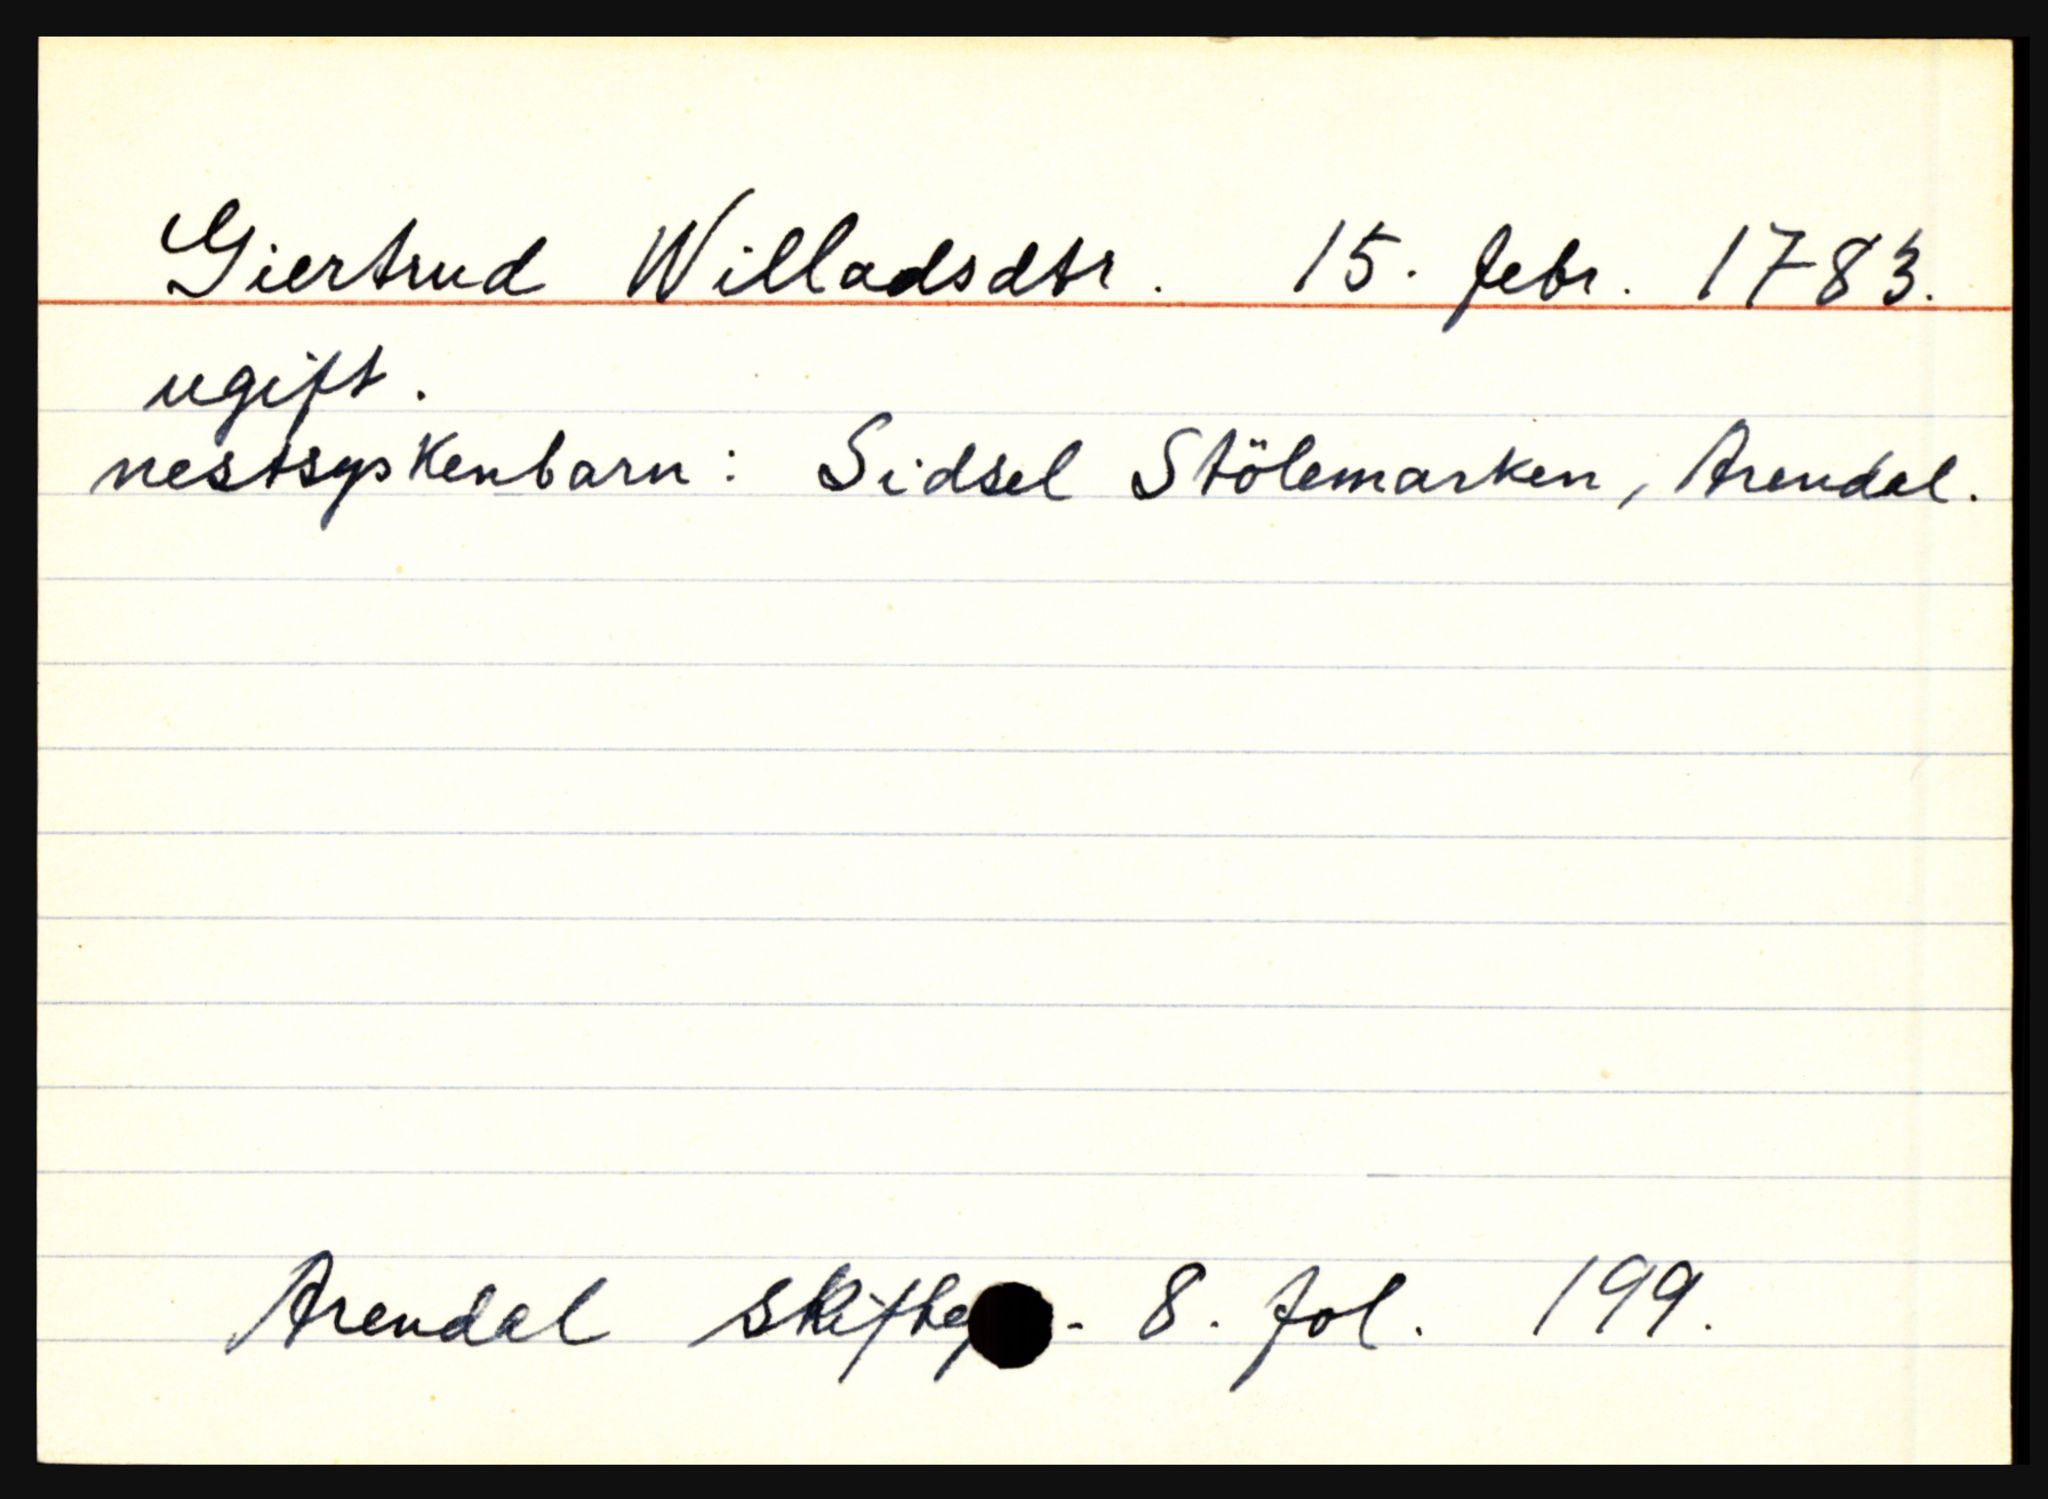 Giertrud Willadsdtr. 15. febr. 1783.
ugift.
nestsyskenbarn: Sidsel Stölemarken, Arendal.
Arendal 8. fol. 199.